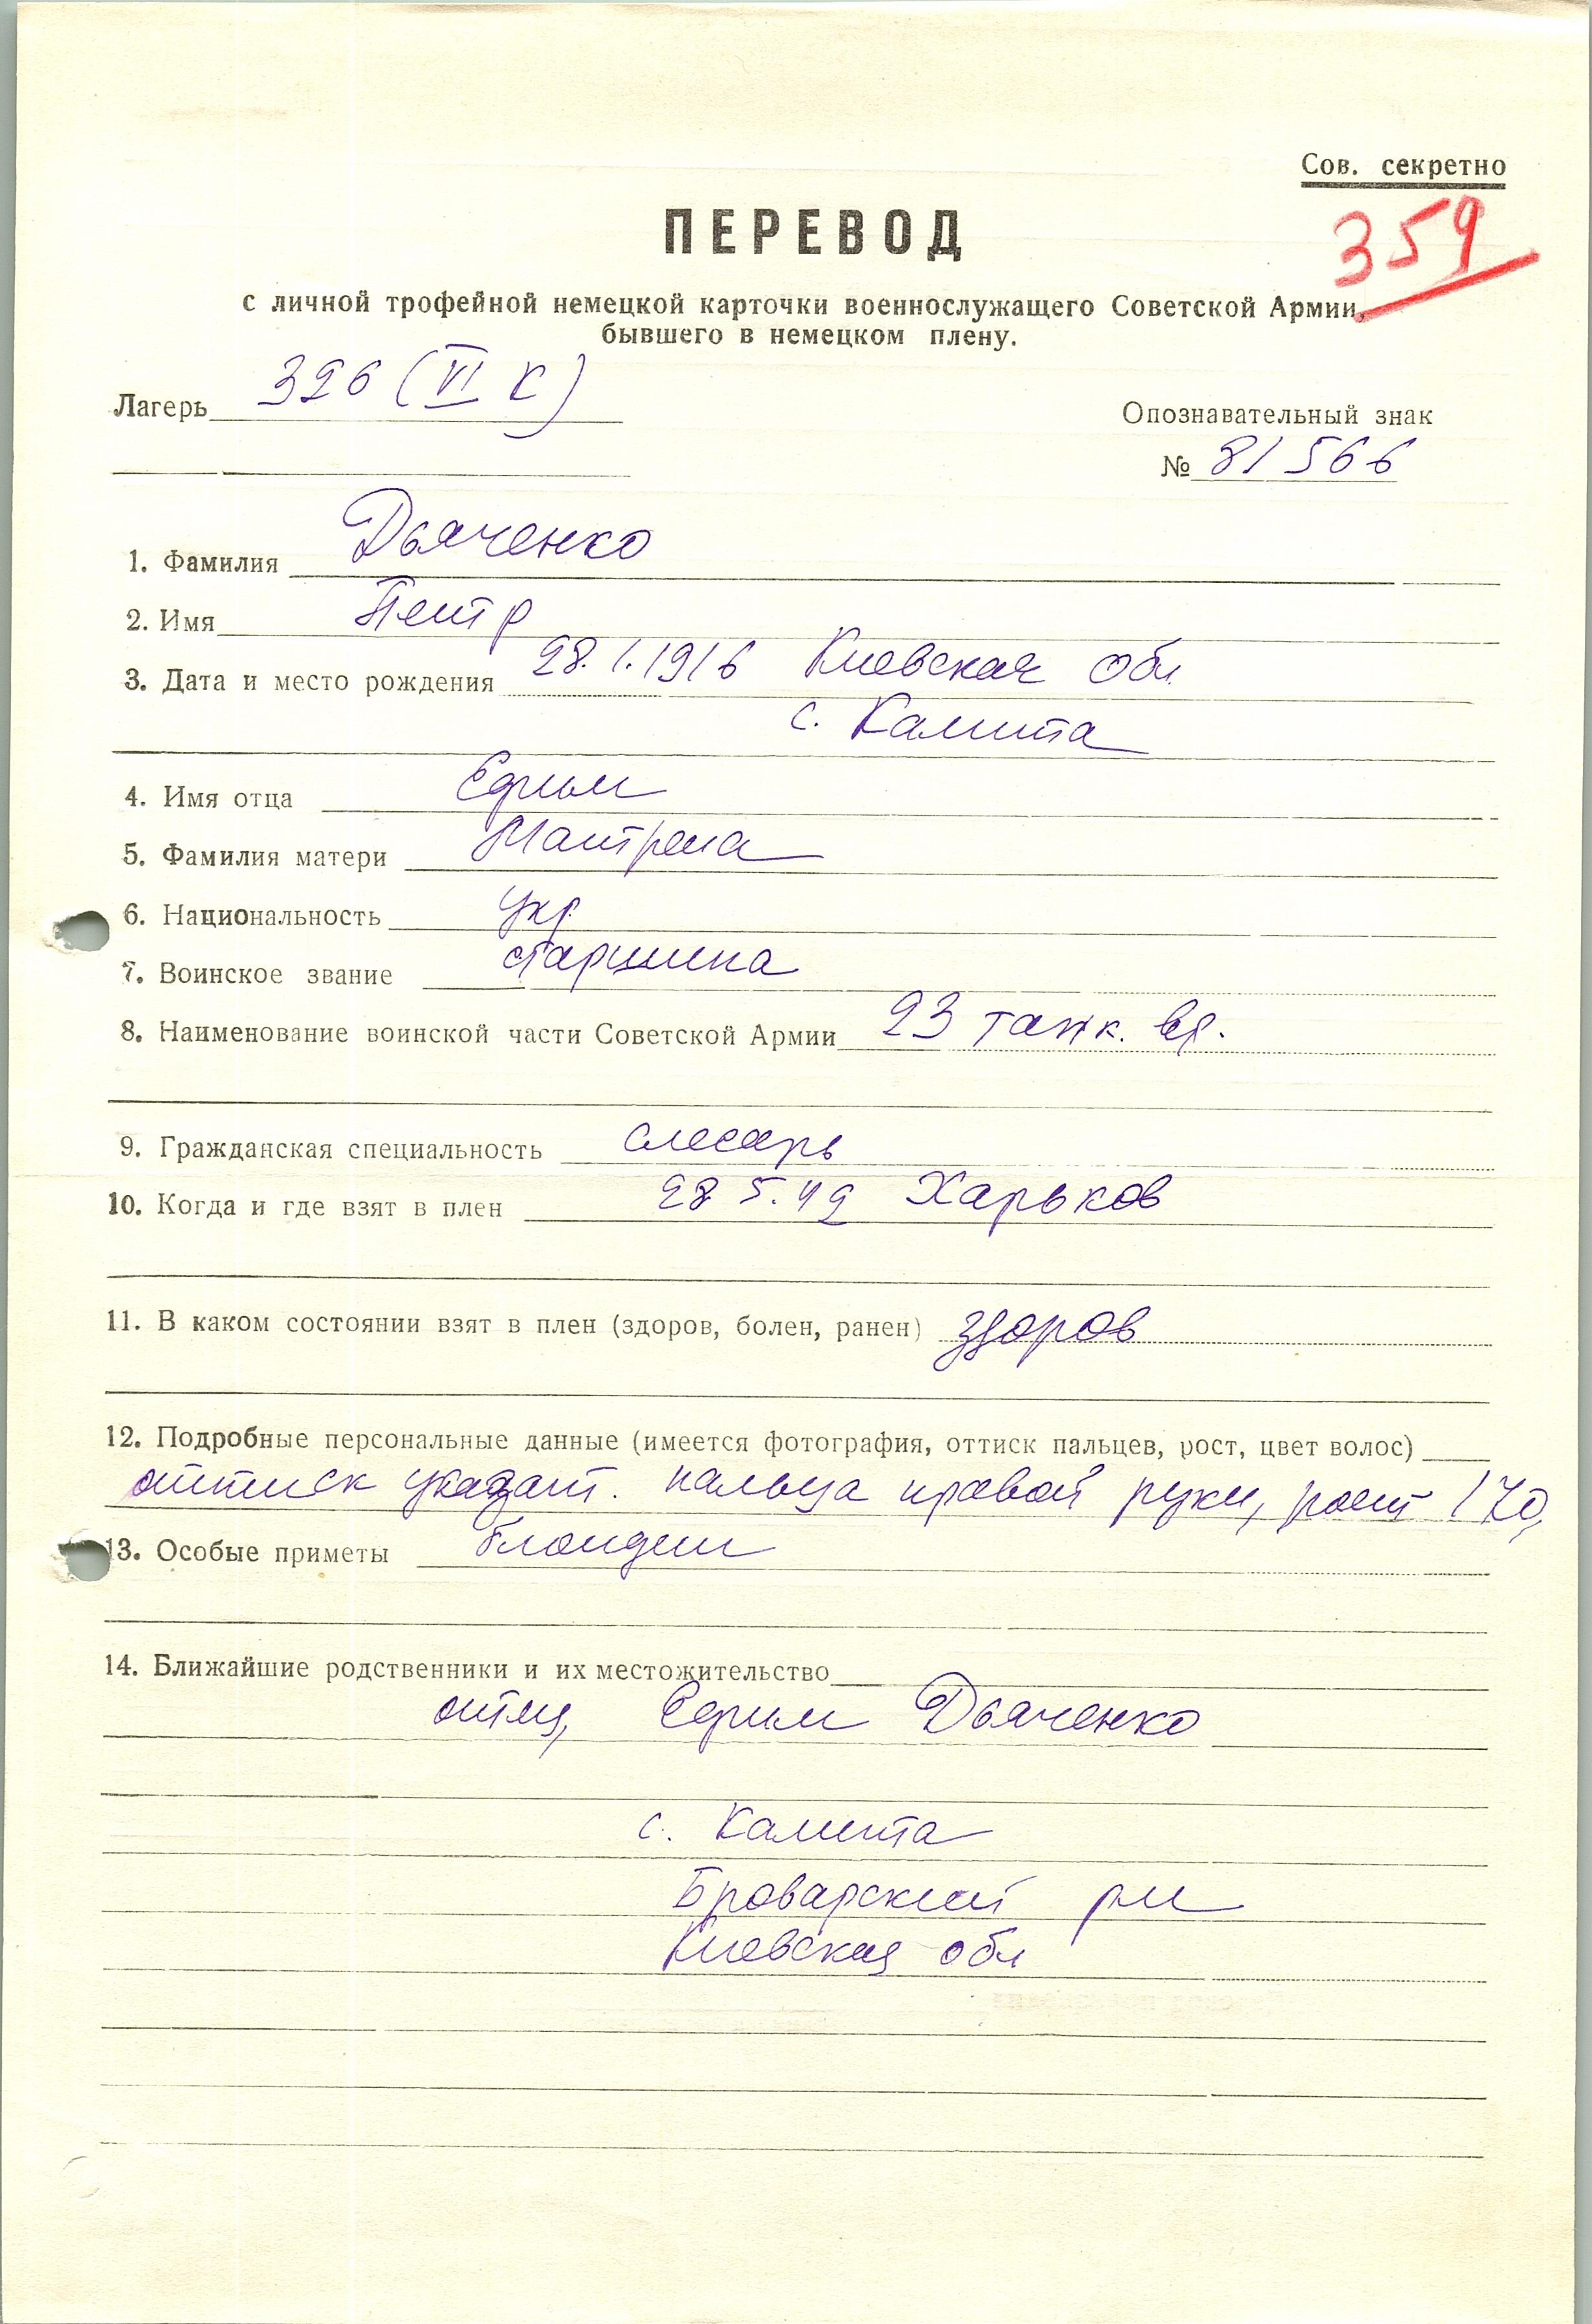 Сов. секретно
359
ПЕРЕВОД
с личной трофейной немецкой карточки военнослужащего Советской Армии,
бывшего в немецком плену.
Лагерь 326 (VI К)
Опознавательный знак
№ 81566
1. Фамилия Дьяченко
2. Имя Петр
3. Дата и место рождения 28.1.1916 Киевская обл
с. Калита
4. Имя отца Ефим
5. Фамилия матери Матрена
6. Национальность укр
7. Воинское звание старшина
8. Наименование воинской части Советской Армии 23 танк.
9. Гражданская специальность слесарь
10. Когда и где взят в плен 28 5.42 Харьков
11. В каком состоянии взят в плен (здоров, болен, ранен) здоров
12. Подробные персональные данные (имеется фотография, оттиск пальцев, рост, цвет волос)
оттиск указат. пальца правой руки, рост 170,
13. Особые приметы блондин
14. Ближайшие родственники и их местожительство
отец, Ефим Дьяченко
с. Калита
Броварский рн
Киевская обл